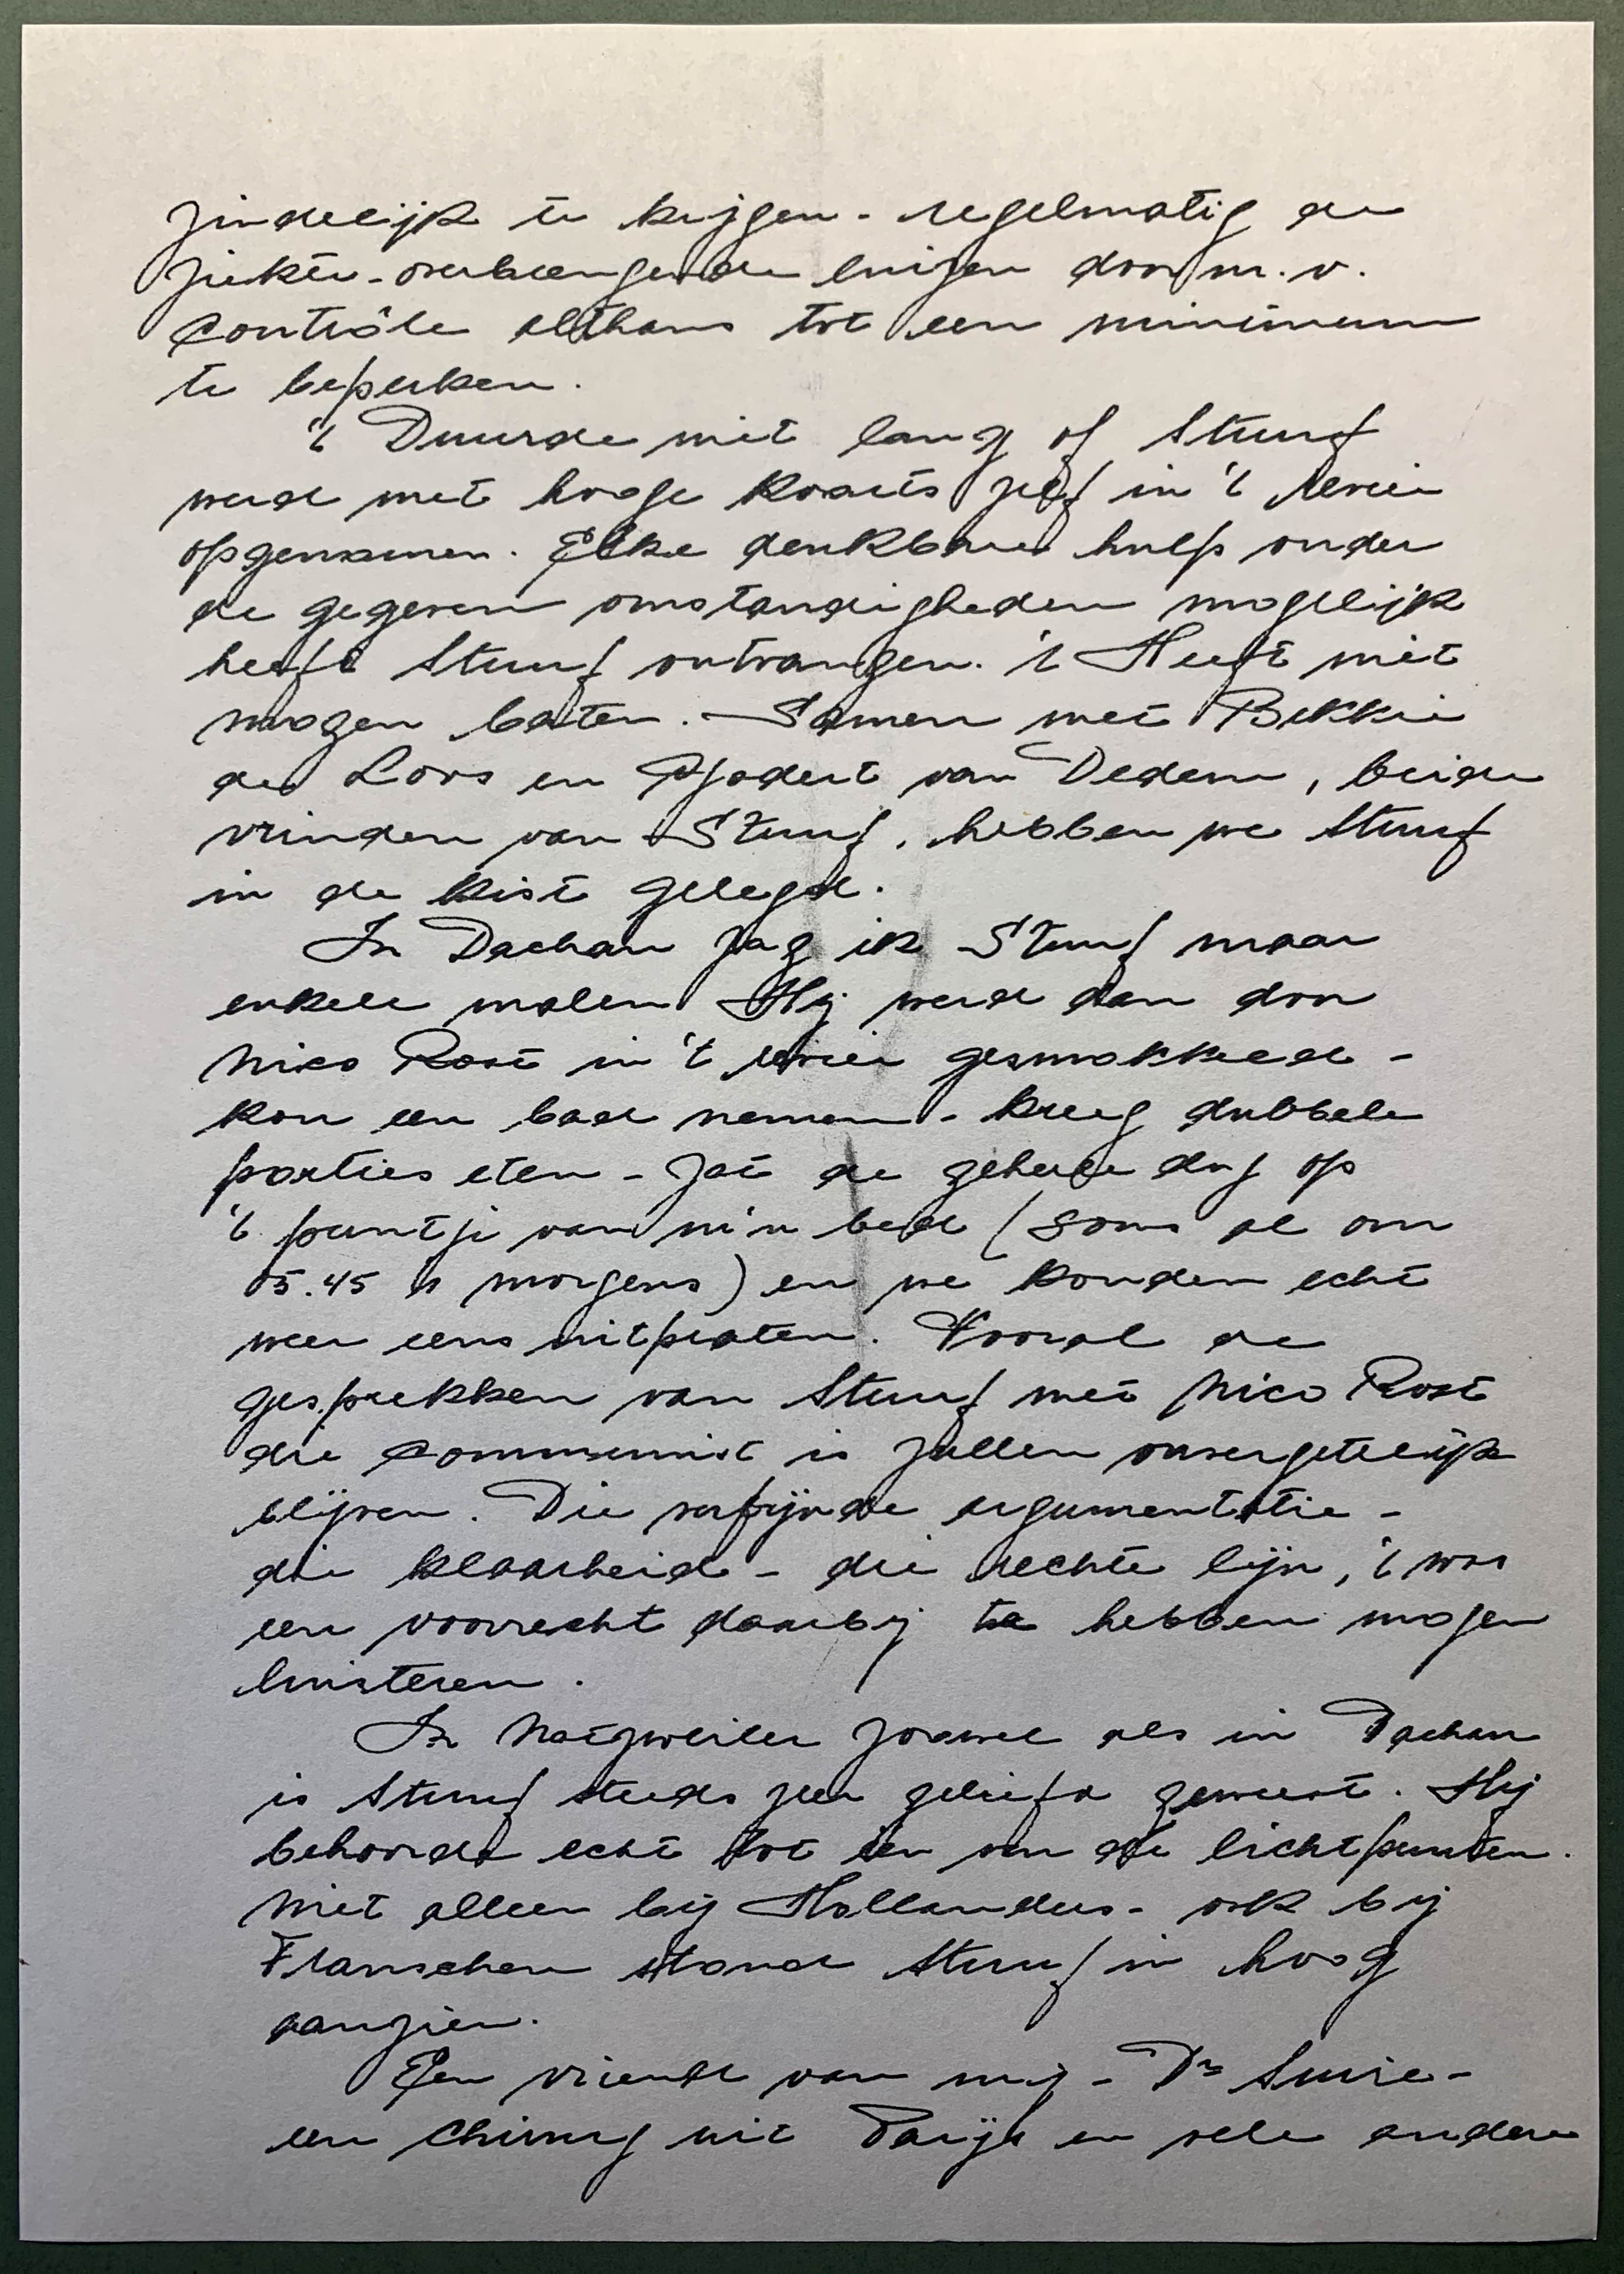 zindelijk te krijgen - regelmatig de
ziekte-overbrengende luizen door m.v.
contrôle althans tot een minimum
te beperken.
't Duurde niet lang of Stuuf
werd met hooge koorts zelf in 't revier
opgenomen. Elke denkbare hulp onder
de gegeven omstandigheden mogelijk
heeft Stuuf ontvangen. 't Heeft niet
mogen baten. Samen met Bokkie
de Loos en Godert van Dedem, beide
vrinden van Stuuf, hebben we Stuuf
in de kist gelegd.
In Dachau zag ik Stuuf maar
enkele malen. Hij werd dan door
Nico Rost in 't revier gesmokkeld -
kon een bad nemen - kreeg dubbele
porties eten - zat de geheele dag op
't puntje van m'n bed (soms al om
05.45 's morgens) en we konden echt
weer eens uitpraten. Vooral de
gesprekken van Stuuf met Nico Rost
die communist is zullen onvergetelijk
blijven. Die verfijnde argumentatie -
die klaarheid - die rechte lijn, 't was
een voorrecht daarbij te hebben mogen
luisteren.
In Natzweiler zoowel als in Dachau
is Stuuf steeds zeer geliefd geweest. Hij
behoorde echt tot een van de lichtpunten.
Niet alleen bij Hollanders - ook bij
Franschen stond Stuuf in hoog
aanzien.
Een vriend van mij - Dr
een chirurg uit Parijs en vele andere